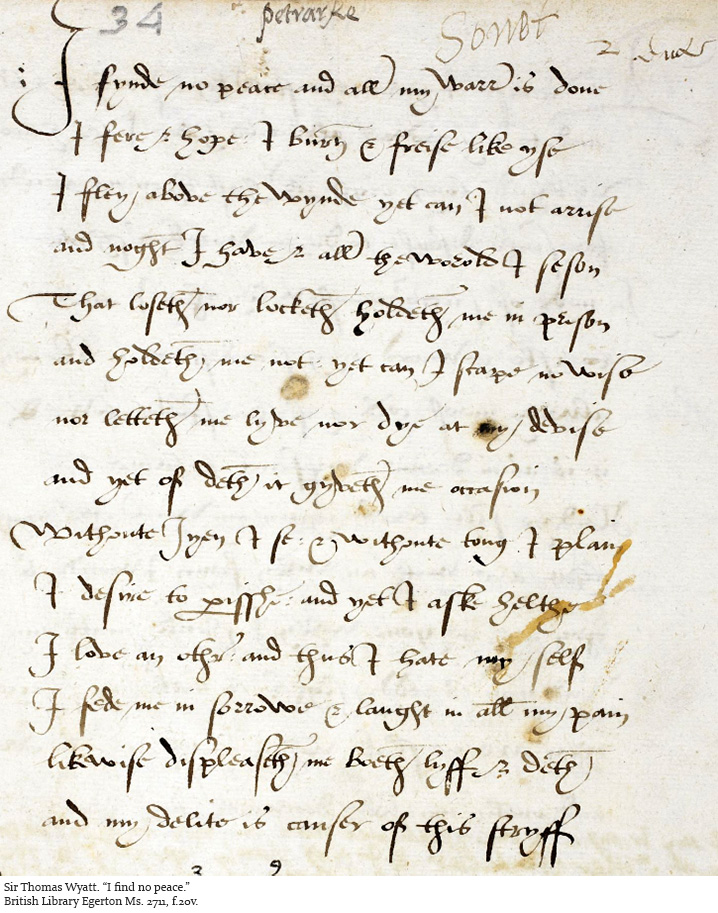 34 petrarke Sonet 2
i I fynde no peace and all my warr is done
I fere & hope I burn & freise like yse
I fley above the wynde yet can I not arrise
and noght I have & all the worold I seson
That loseth nor locketh holdeth me in prison
and holdeth me not yet can I scape nowise
nor letteth me lyve nor dye at my devise
and yet of deth it gyveth me occasion
Withoute Iyen I se & withoute tong I plain
I desire to perisshe and yet I aske helthe
I love an othr and thus I hate my self
I fede me in sorrowe & laught in all my pain
likewise displeaseth me boeth lyff & deth
and my delite is causer of this stryff
Sir Thomas Wyatt. “I find no peace.”
British Library Egerton Ms. 2711, f.20v.